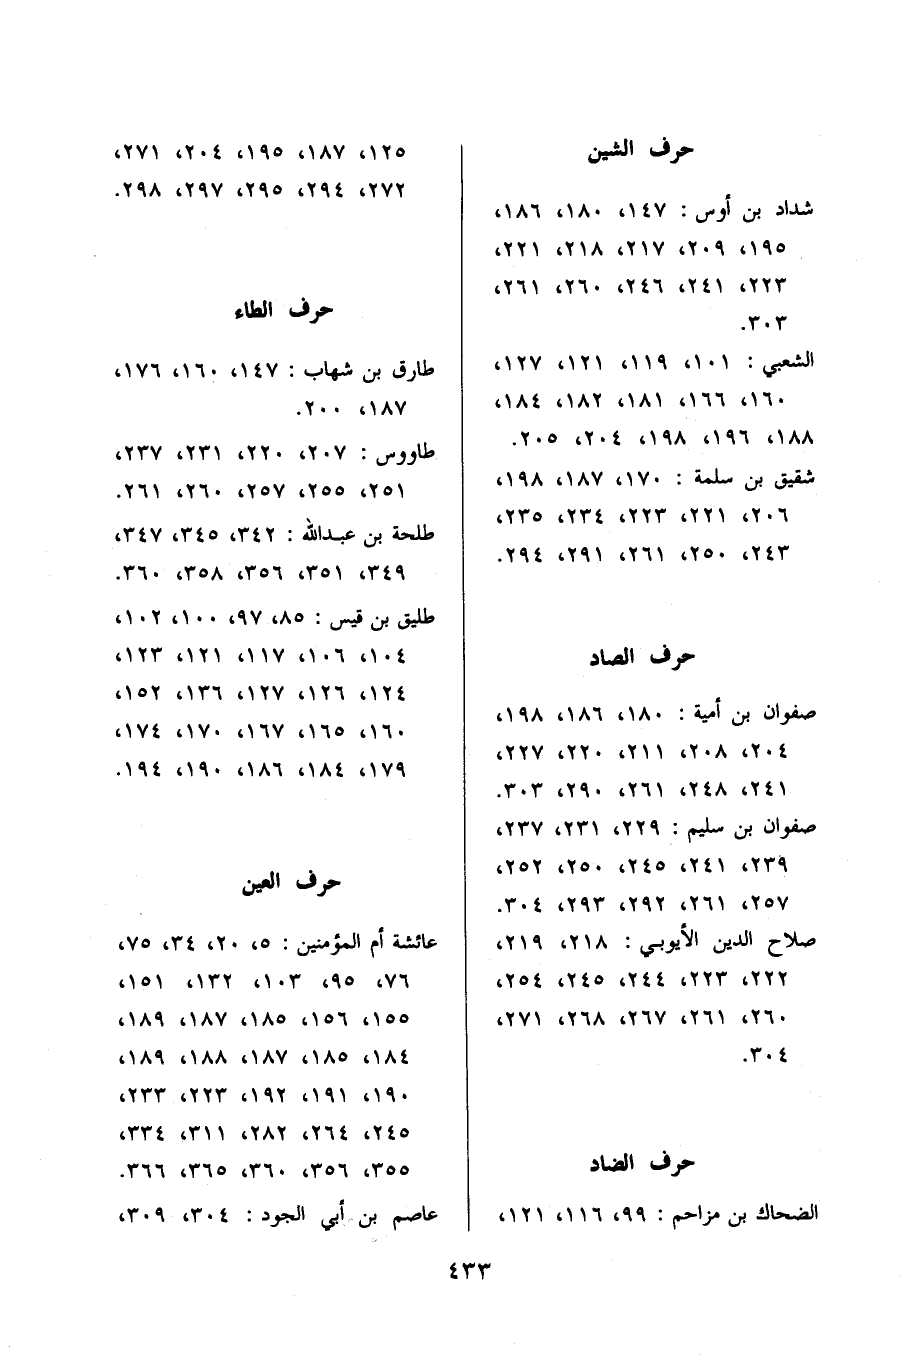 حرف الشين
شداد بن أوس : ١٤٧، ١٨٠، ١٨٦،
١٩٥، ٢٠٩، ٢١٧، ٢١٨، ٢٢١،
٢٢٣، ٢٤١، ٢٤٦، ٢٦٠، ٢٦١،
٣٠٣.
الشعبي : ١٠١، ١١٩، ١٢١، ١٢٧،
١٦٠، ١٦٦، ١٨١، ١٨٢، ١٨٤،
١٨٨، ١٩٦، ١٩٨، ٢٠٤، ٢٠٥.
شقيق بن سلمة : ١٧٠، ١٨٧، ١٩٨،
٢٠٦، ٢٢١، ٢٢٣، ٢٣٤، ٢٣٥،
٢٤٣، ٢٥٠، ٢٦١، ٢٩١، ٢٩٤.
حرف الصاد
صفوان بن أمية : ١٨٠، ١٨٦، ١٩٨،
٢٠٤، ٢٠٨، ٢١١، ٢٢٠، ٢٢٧،
٢٤١، ٢٤٨، ٢٦١، ٢٩٠، ٣٠٣.
صفوان بن سليم : ٢٢٩، ٢٣١، ٢٣٧،
٢٣٩، ٢٤١، ٢٤٥، ٢٥٠، ٢٥٢،
٢٥٧، ٢٦١، ٢٩٢، ٢٩٣، ٣٠٤.
صلاح الدين الأيوبي : ٢١٨، ٢١٩،
٢٢٢، ٢٢٣، ٢٤٤، ٢٤٥، ٢٥٤،
٢٦٠، ٢٦١، ٢٦٧، ٢٦٨، ٢٧١،
٣٠٤.
حرف الضاد
الضحاك بن مزاحم : ٩٩، ١١٦، ١٢١،
١٢٥، ١٨٧، ١٩٥، ٢٠٤، ٢٧١،
٢٧٢، ٢٩٤، ٢٩٥، ٢٩٧، ٢٩٨.
حرف الطاء
طارق بن شهاب : ١٤٧، ١٦٠، ١٧٦،
١٨٧، ٢٠٠.
طاووس : ٢٠٧، ٢٢٠، ٢٣١، ٢٣٧،
٢٥١، ٢٥٥، ٢٥٧، ٢٦٠، ٢٦١.
طلحة بن عبدالله : ٣٤٢، ٣٤٥، ٣٤٧،
٣٤٩، ٣٥١، ٣٥٦، ٣٥٨، ٣٦٠.
طليق بن قيس : ٨٥، ٩٧، ١٠٠، ١٠٢،
١٠٤، ١٠٦، ١١٧، ١٢١، ١٢٣،
١٢٤، ١٢٦، ١٢٧، ١٣٦، ١٥٢،
١٦٠، ١٦٥، ١٦٧، ١٧٠، ١٧٤،
١٧٩، ١٨٤، ١٨٦، ١٩٠، ١٩٤.
حرف العين
عائشة أم المؤمنين : ٥، ٢٠، ٣٤، ٧٥،
٧٦، ٩٥، ١٠٣، ١٣٢، ١٥١،
١٥٥، ١٥٦، ١٨٥، ١٨٧، ١٨٩،
١٨٤، ١٨٥، ١٨٧، ١٨٨، ١٨٩،
١٩٠، ١٩١، ١٩٢، ٢٢٣، ٢٣٣،
٢٤٥، ٢٦٤، ٢٨٢، ٣١١، ٣٣٤،
٣٥٥، ٣٥٦، ٣٦٠، ٣٦٥، ٣٦٦.
عاصم بن أبي الجود : ٣٠٤، ٣٠٩،
٤٣٣